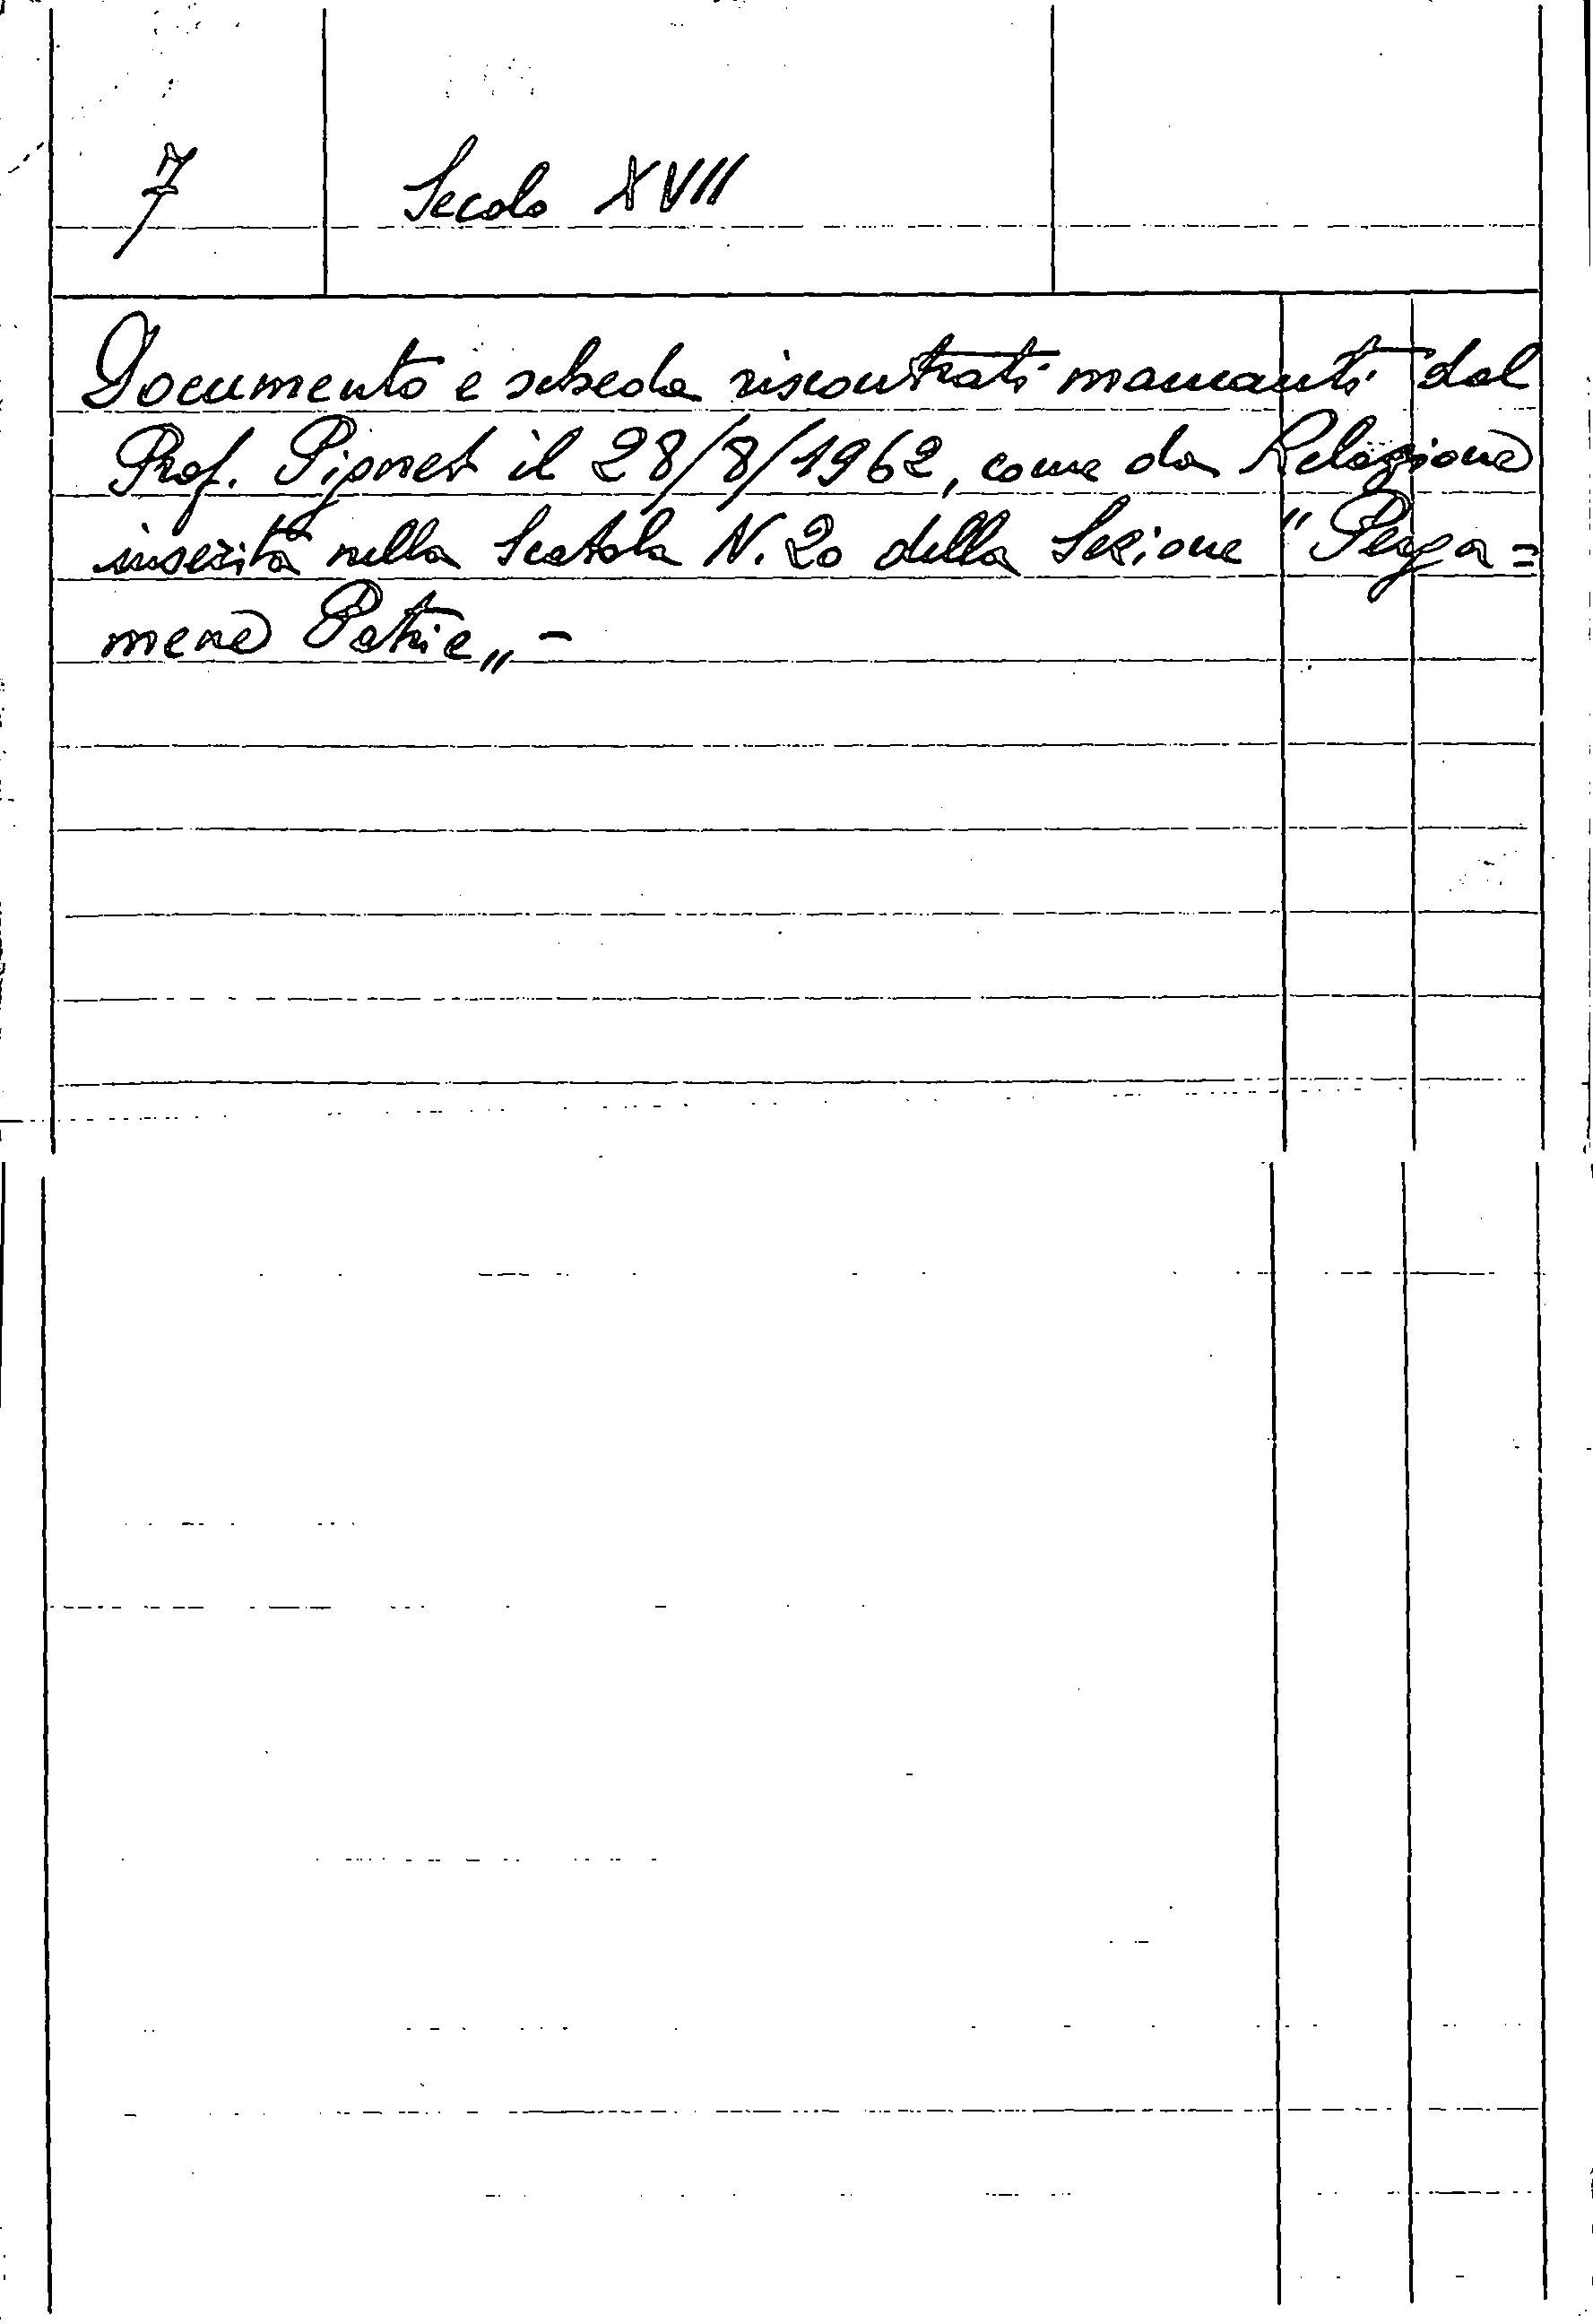 7 Secolo XVII
Documento e scheda riscontrati mancanti dal
Prof. il 28/8/1962, come da Relazione
inserita nella Scatola N. 20 della Sezione "Perga=
mene Patrie„ -